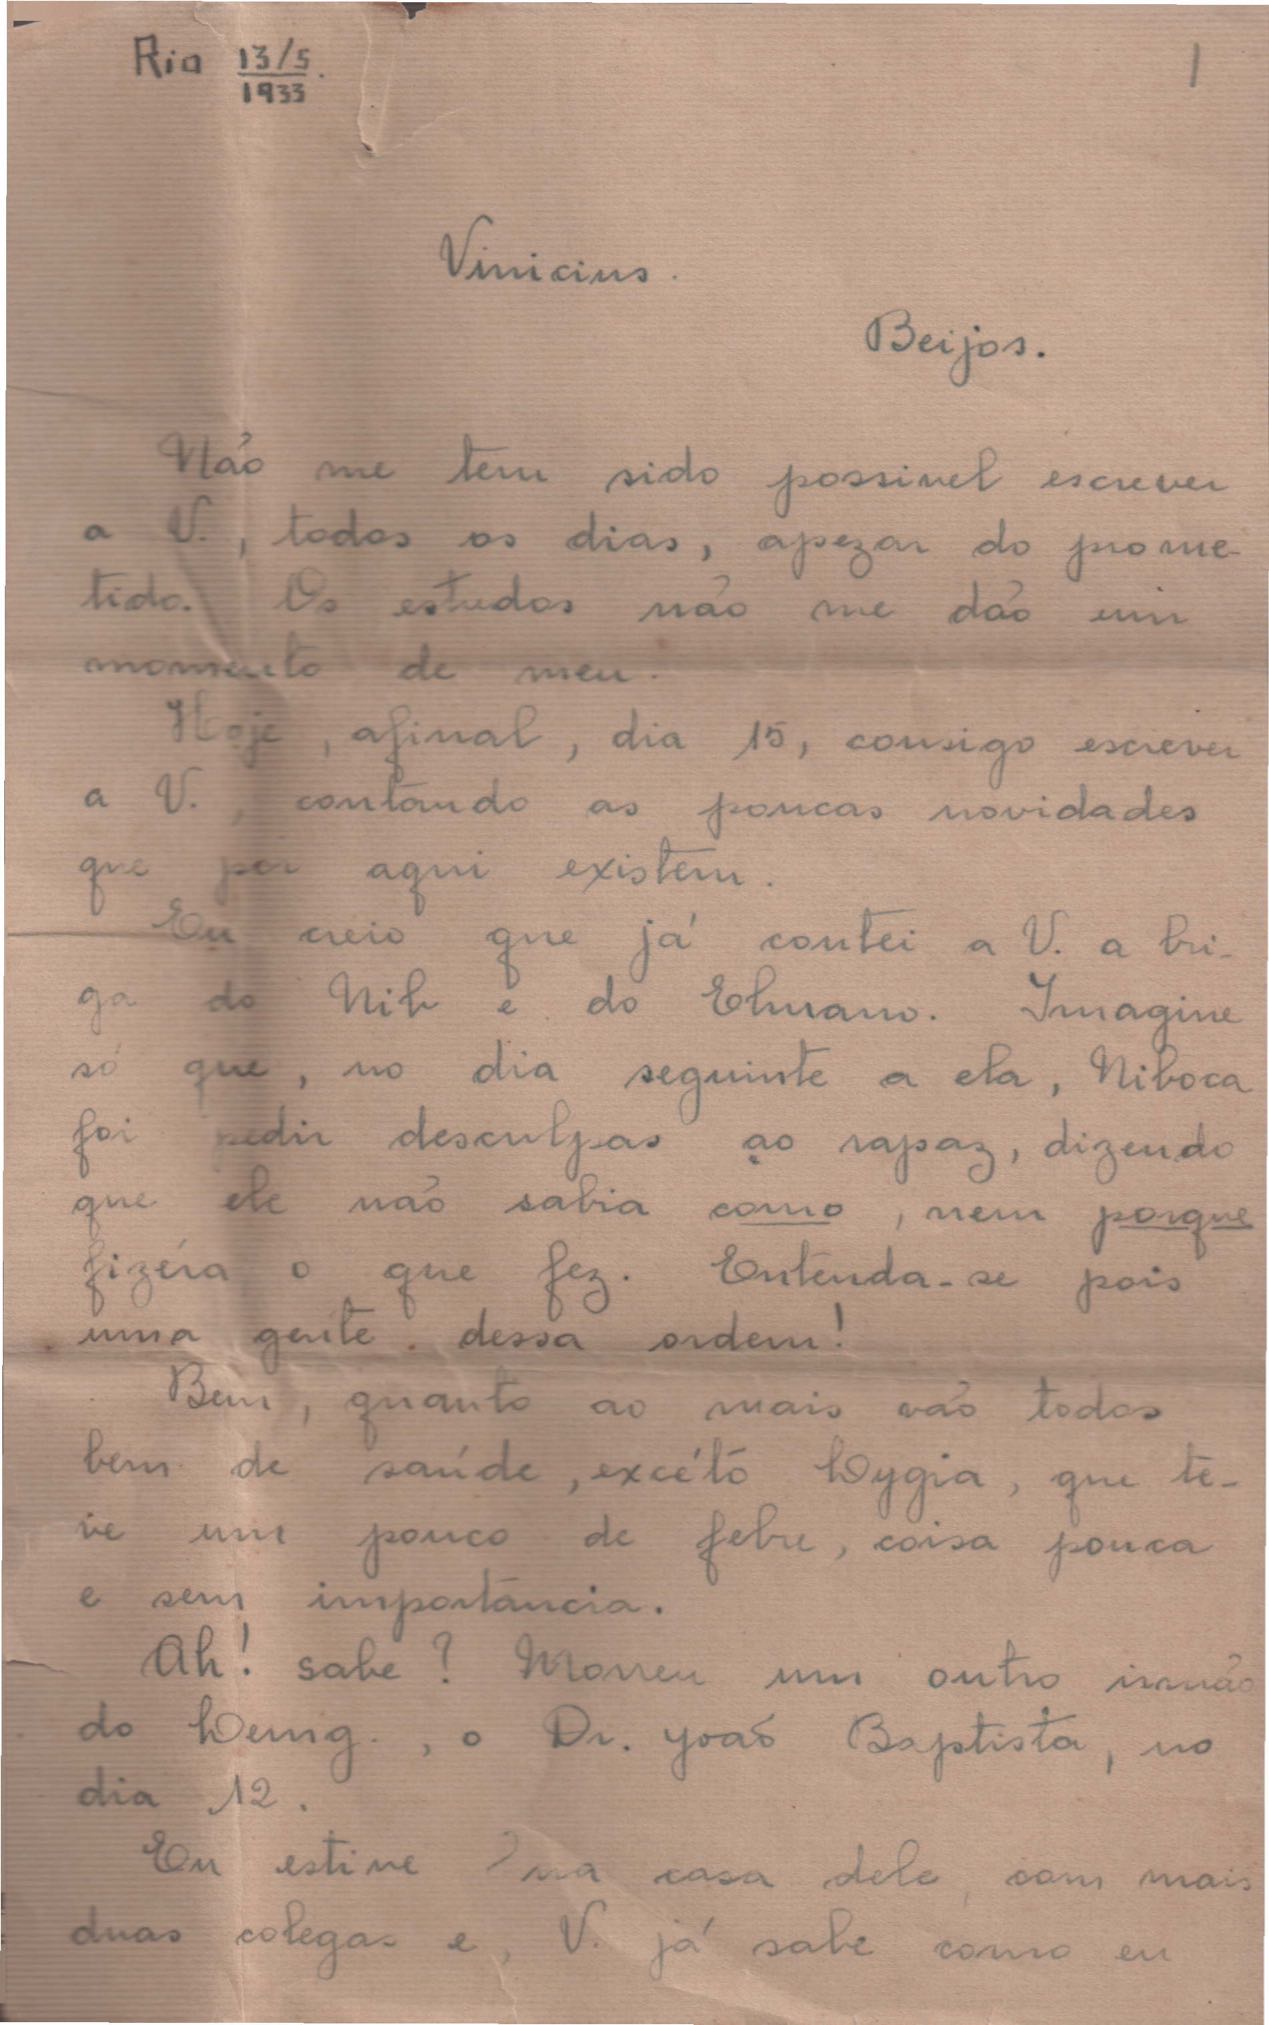 Rio 13/5
1933.
1
Vinicius.
Beijos.
Não me tem sido possivel escrever
a V., todos os dias, apezar do prome-
tido. Os estudos não me dão um
momento de meu.
Hoje, afinal, dia 15, consigo escrever
a V., contando as poucas novidades
que por aqui existem.
Eu creio que já contei a V. a bri-
ga do Nilo e do Elmano. Imagine
só que, no dia seguinte a ela, Niloca
foi pedir desculpas ao rapaz, dizendo
que ele não sabia como, nem porque
fizéra o que fez. Entenda-se pois
uma gente dessa ordem!
Bem, quanto ao mais vão todos
bem de saúde, excéto Lygia, que te-
ve um pouco de febre, coisa pouca
e sem importância.
Ah! sabe? Morreu um outro irmão
do, o Dr. João Baptista, no
dia 12.
Eu estive na casa dele, com mais
duas colegas e, V. já sabe como eu